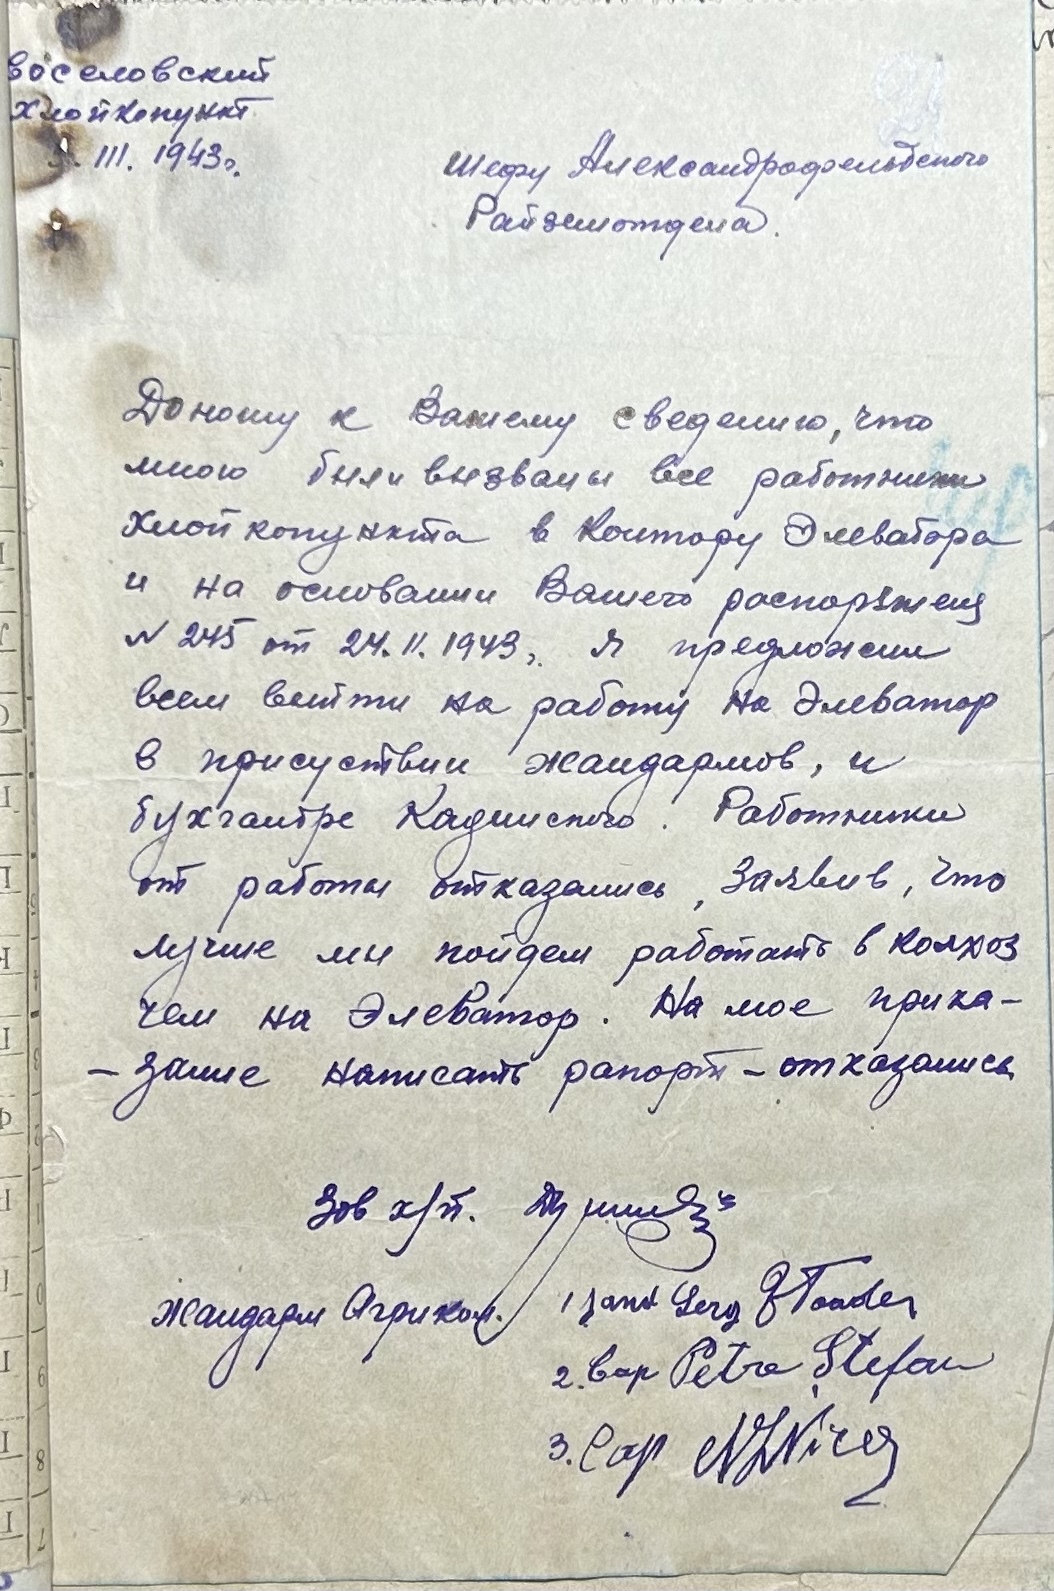 воселовский
Хлопкопункт
III. 1943г.
Шефу Александрофельдского
Райземотдела.
Доношу к Вашему сведению, что
мною были вызваны все работники
Хлопкопункта в Контору Элеватора
и на основании Вашего распоряжения
N 245 от 24.II.1943г. Я предложил
всем выйти на работу на Элеватор
в присуствии жандармов, и
бухгалтре Кадинского. Работники
от работы отказались, заявив, что
лучше мы пойдем работать в колхоз
чем на Элеватор. На мое прика-
-зание написать рапорт - отказались
Зав х/п.
Жандарм Агрикол. 1 Serg Toader
2. Cap Petre Ștefan
3. Cap